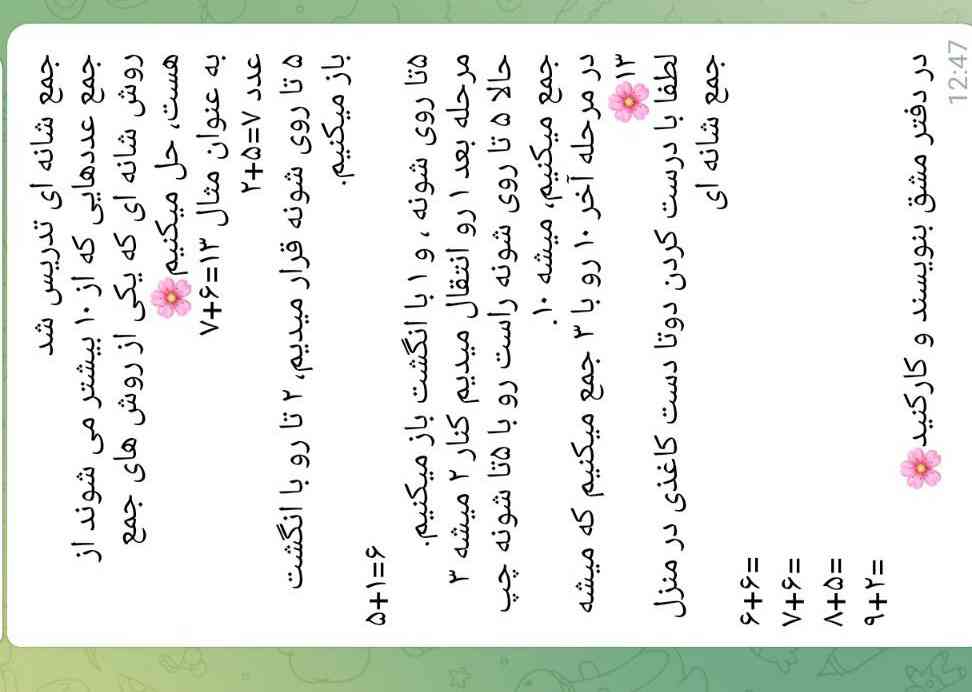 جمع شانه ای تدریس شد
جمع عددهایی که از ۱۰ بیشتر می شوند از
روش شانه ای که یکی از روش های جمع
هست، حل میکنیم🌸
به عنوان مثال ۱۳=۶+۷
عدد ۷=۵+۲
۵ تا روی شونه قرار میدیم، ۲ تا رو با انگشت
باز میکنیم.
۵+۱=۶
۵تا روی شونه ، و ۱ با انگشت باز میکنیم.
مرحله بعد ۱ رو انتقال میدیم کنار ۲ میشه ۳
حالا ۵ تا روی شونه راست رو با ۵تا شونه چپ
جمع میکنیم، میشه ۱۰.
در مرحله آخر ۱۰ رو با ۳ جمع میکنیم که میشه
۱۳🌸
لطفا با درست کردن دوتا دست کاغذی در منزل
جمع شانه ای
۶+۶=
۷+۶=
۸+۵=
۹+۲=
در دفتر مشق بنویسند و کارکنید🌸
12:47